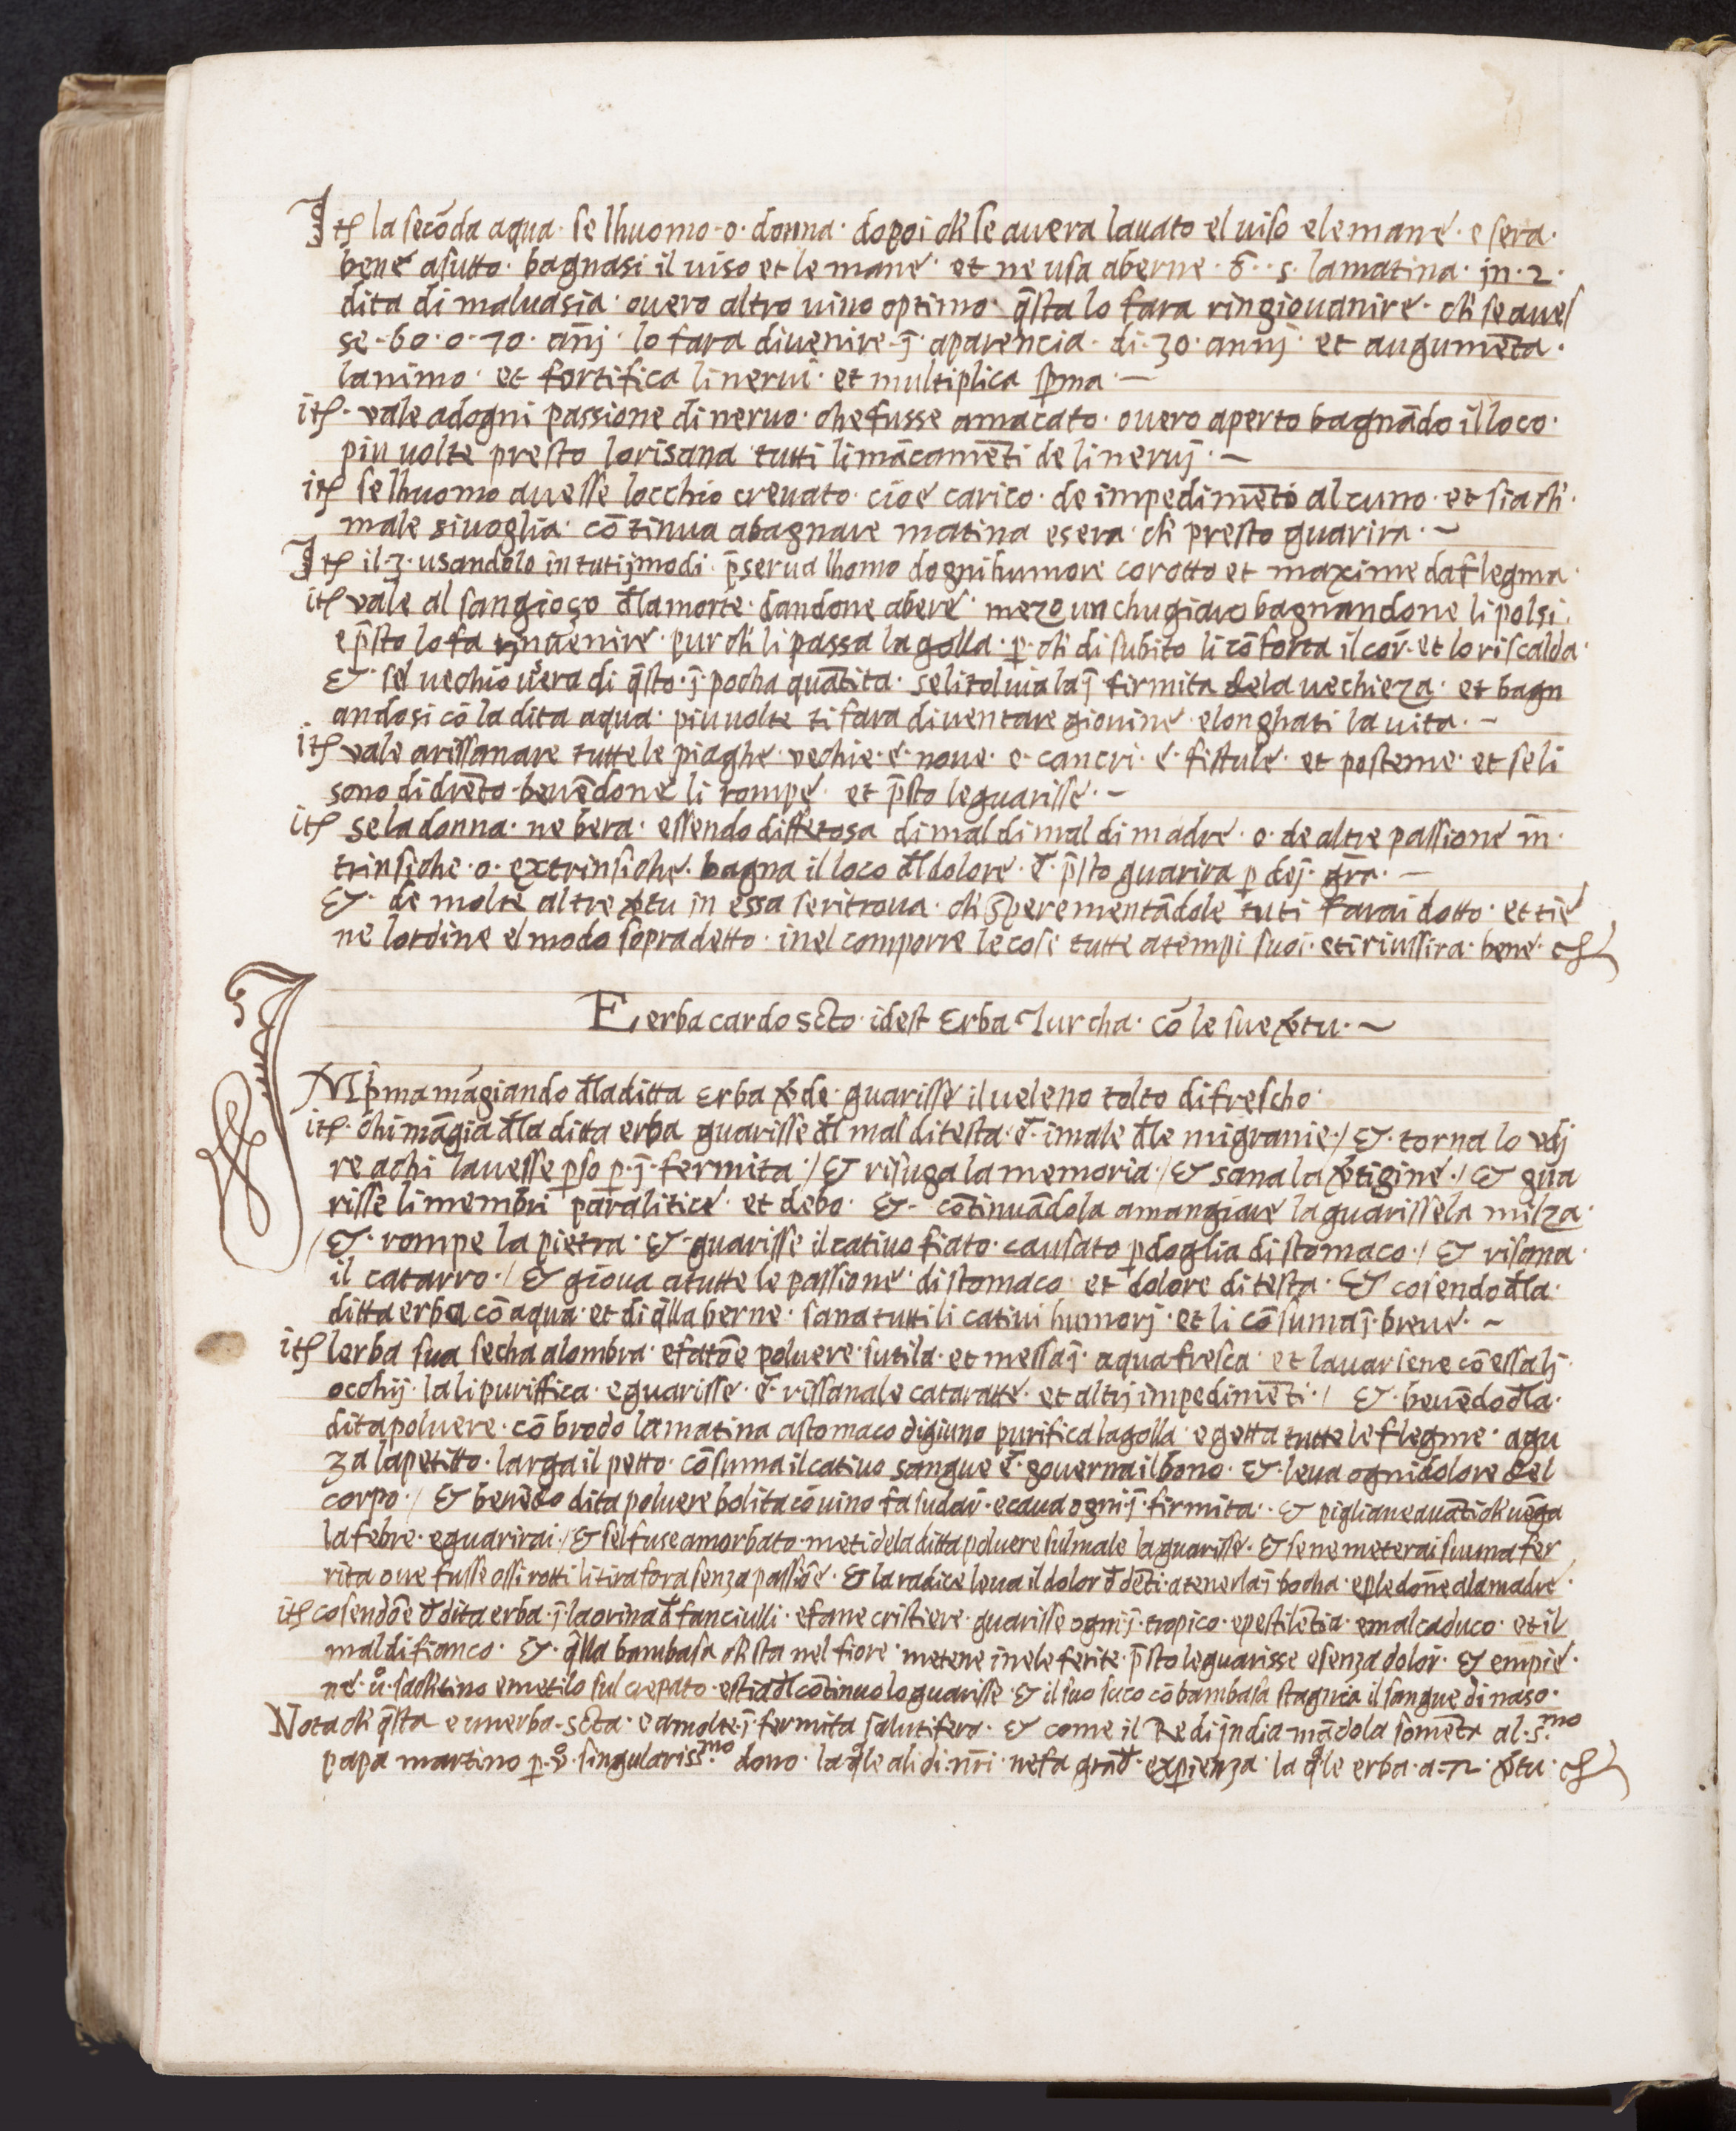 Itē la secōda aqua· se lhuomo·o·donna· dopoi ch̄ se avera lauato el uiso elemane· e sera·
bene asutto· bagnasi il uiso et le mane· et ne usa aberne· ·s· lamatina· in·2·
dita di maluasia· ouero altro uino optimo· q̄sta lo fara ringiouanire· ch̄ se aues
se·60·o·70· anj· lo fara diuenire·j̄·aparencia·di·30·annj· et augumēta·
lanimo· et fortifica linerui· et multiplica sp̄ma·—
itē· vale adogni passione di neruo· che fusse amacato· ouero aperto bagnādo il loco·
piu uolte presto lorisana tutti limācamēti de li neruj·~
itē se lhuomo auesse locchio creuato· cioe carico· de impedimēto alcuno· et sia ch̄·
male siuoglia· cōtinua abagnare matina esera· ch̄ presto guarira·~
Itē il·3·usandolo in tutijmodi· p̄serua lhomo dognihumore corotto et maxime daflegma·
itē vale al sangiozo d̄lamorte· dandone abere· mezo un chugiaro bagnandone li polsi·
e p̄sto lo fa rinuenire· pur ch̄ li passa la golla· p̱· ch̄ di subito li cōforta il cor̄· et lo riscalda·
&· sel uechio uſera di q̄sto·j̄·pocha quātita· selitoluia la j̄ firmita dela uechieza· et bagn
andosi cō la dita aqua· piu uolte ti fara diuentare giouine· elonghati la uita·~
itē vale arissanare tutte le piaghe· vechie·e·noue· e·cancri·e·fistule· et posteme· et se li
sono di drēto beuēdone li rompe· et p̄sto leguarisse·~
itē se la donna· ne bera· essendo diffetosa di mal di mal di madre· o· de altre passione in̄·
trinsiche·o·extrinsiche· bagna il loco d̄l dolore·e· p̄sto guarira p̱ dej· gr̄a·—
&· de molte altre v̄tu in essa se ritroua· ch̄ sperementādole tuti farai dotto· et tie
ne lordine el modo sopradetto· inel comporre le cose tutte atempi suoi· etiriussira· bene·
E, erba cardo scto· idest Erba Turcha· cō le sue v̄tu·~
IN p̄ma māgiando d̄la ditta erba v̄de· guarisse il ueleno tolto di frescho·
itē· chi māgia d̄la ditta erba guarisse d̄l mal di testa·e· imale d̄le migranie·/ &· torna lo vdj
re achi lauesse p̱so p̱·j̄·fermita·/ & risuga la memoria·/ & sana la v̄tigine·/ & gua
risse li membri paralitice· et debo· &· cōtinuādola amangiare la guarisse la milza·
/&· rompe la pietra· &· guarisse il catiuo fiato· causato p̱ doglia di stomaco·/ & risana·
il catarro·/ & gioua atutte le passione· di stomaco· et dolore di testa· & cosendo d̄la·
ditta erba cō aqua· et di q̄lla berne· sana tutti li catiui humorj· et li cōsuma j̄·breue·~
itē lerba sua secha alombra· efatōe poluere· sutila· et messa j̄· aqua fresca· et lauarsene cō essa lj·
occhij· la li puriffica· eguarisse·e· rissana le cataratte· et altrj impedimēti·/ &· beuēdo d̄la·
dita poluere· cō brodo la matina astomaco digiuno purifica la golla· e getta tutte le flegme· agu
za lapetitto· larga il petto· cōsuma il catiuo sangue e· gouerna il bono· &· leua ogni dolore del
corpo·/ & beuēdo dita poluere bolita cō uino fa sudar̄· ecaua ogni j̄·firmita·· & pigliane auāti ch̄ uēga
la febre· eguarirai·/ & sel fuse amorbato· meti dela ditta poluere sul male la guarisse· & se ne meterai su una fer
rita oue fusse ossi rotti li tira fora senza passiōe· & la radice leua il dolor d̄ dēti· atenerla j̄ bocha· e p̱ le donne ala madre·
itē cosendōe d̄ dita erba·j̄·la orina d̄ fanciulli· efane cristiere· guarisse ogni·j̄·tropico· epestilētia· emal caduco· et il
mal di fianco· &· q̄lla bambasa ch̄ sta nel fiore· metene inele ferite· p̄sto leguarisse esenza dolor̄· & empie·
ne· u̇· sachetino emetilo sul crepato· estia d̄l cōtinuo lo guarisse· & il suo suco cō bambasa stagnia il sangue di naso·
Nota ch̄ q̄sta e unerba·scta· e amolte·j̄·fermita salutifera· & come il Re di jndia mādola somēta al·s·mo
papa martino p̱·v̊·singulariss·mo dono· la q̄le ali di·nr̄i· nefa grād̄· exp̱ienza· la q̄le erba·a·72· v̄tu·